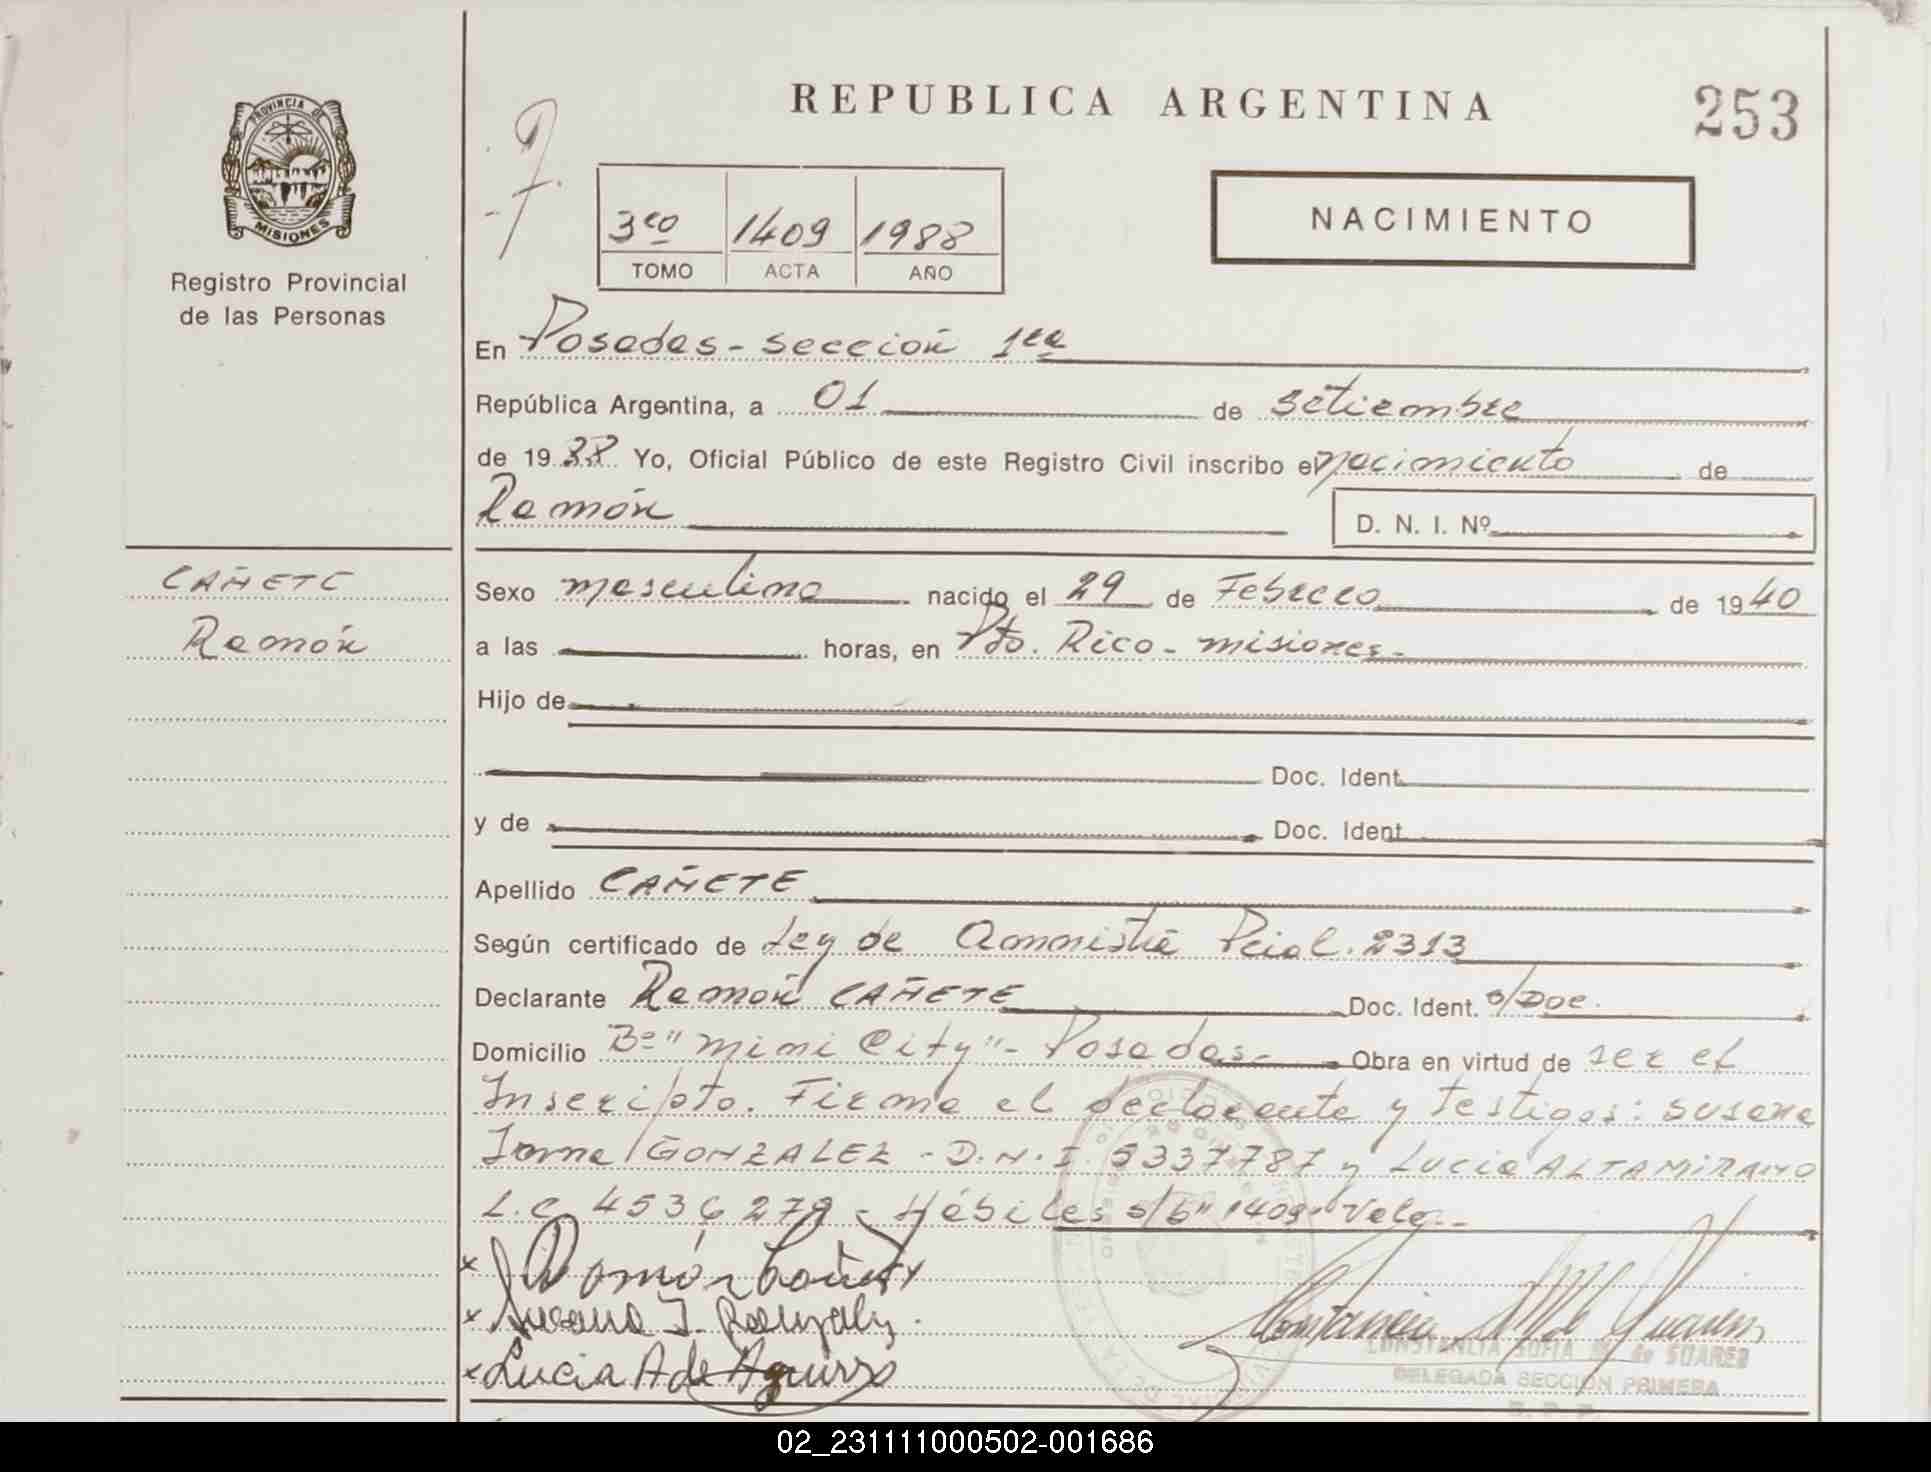 REPUBLICA ARGENTINA
253
PROVINCIA DE
MISIONES
Registro Provincial
de las Personas
3ro 1409 1988
TOMO ACTA AÑO
NACIMIENTO
En Posadas - sección 1ra
República Argentina, a 01 de setiembre
de 1988 Yo, Oficial Público de este Registro Civil inscribo el nacimiento de
Ramón
D. N. I. Nº
CAÑETE
Ramón
Sexo masculino nacido el 29 de Febrero de 1940
a las horas, en Pto. Rico - misiones -
Hijo de
Doc. Ident.
y de Doc. Ident.
Apellido CAÑETE
Según certificado de Ley de Amnistia Pcial. 2313
Declarante Ramón CAÑETE Doc. Ident. s/Doc.
Domicilio Bº "Mini City" - Posadas - Obra en virtud de ser el
Inscripto. Firma el declarante y testigos: Susana
Irma GONZALEZ - D.N.I. 5337787 y Lucia ALTAMIRANO
L.C. 4536279 - Hábiles s/b "1409" Vale -
x Ramón Cañete
x Susana I. Gonzalez
x Lucia A de Aguirre
CONSTANCIA SOFIA M. de SUAREZ
DELEGADA SECCION PRIMERA
R. P. P.
02_231111000502-001686